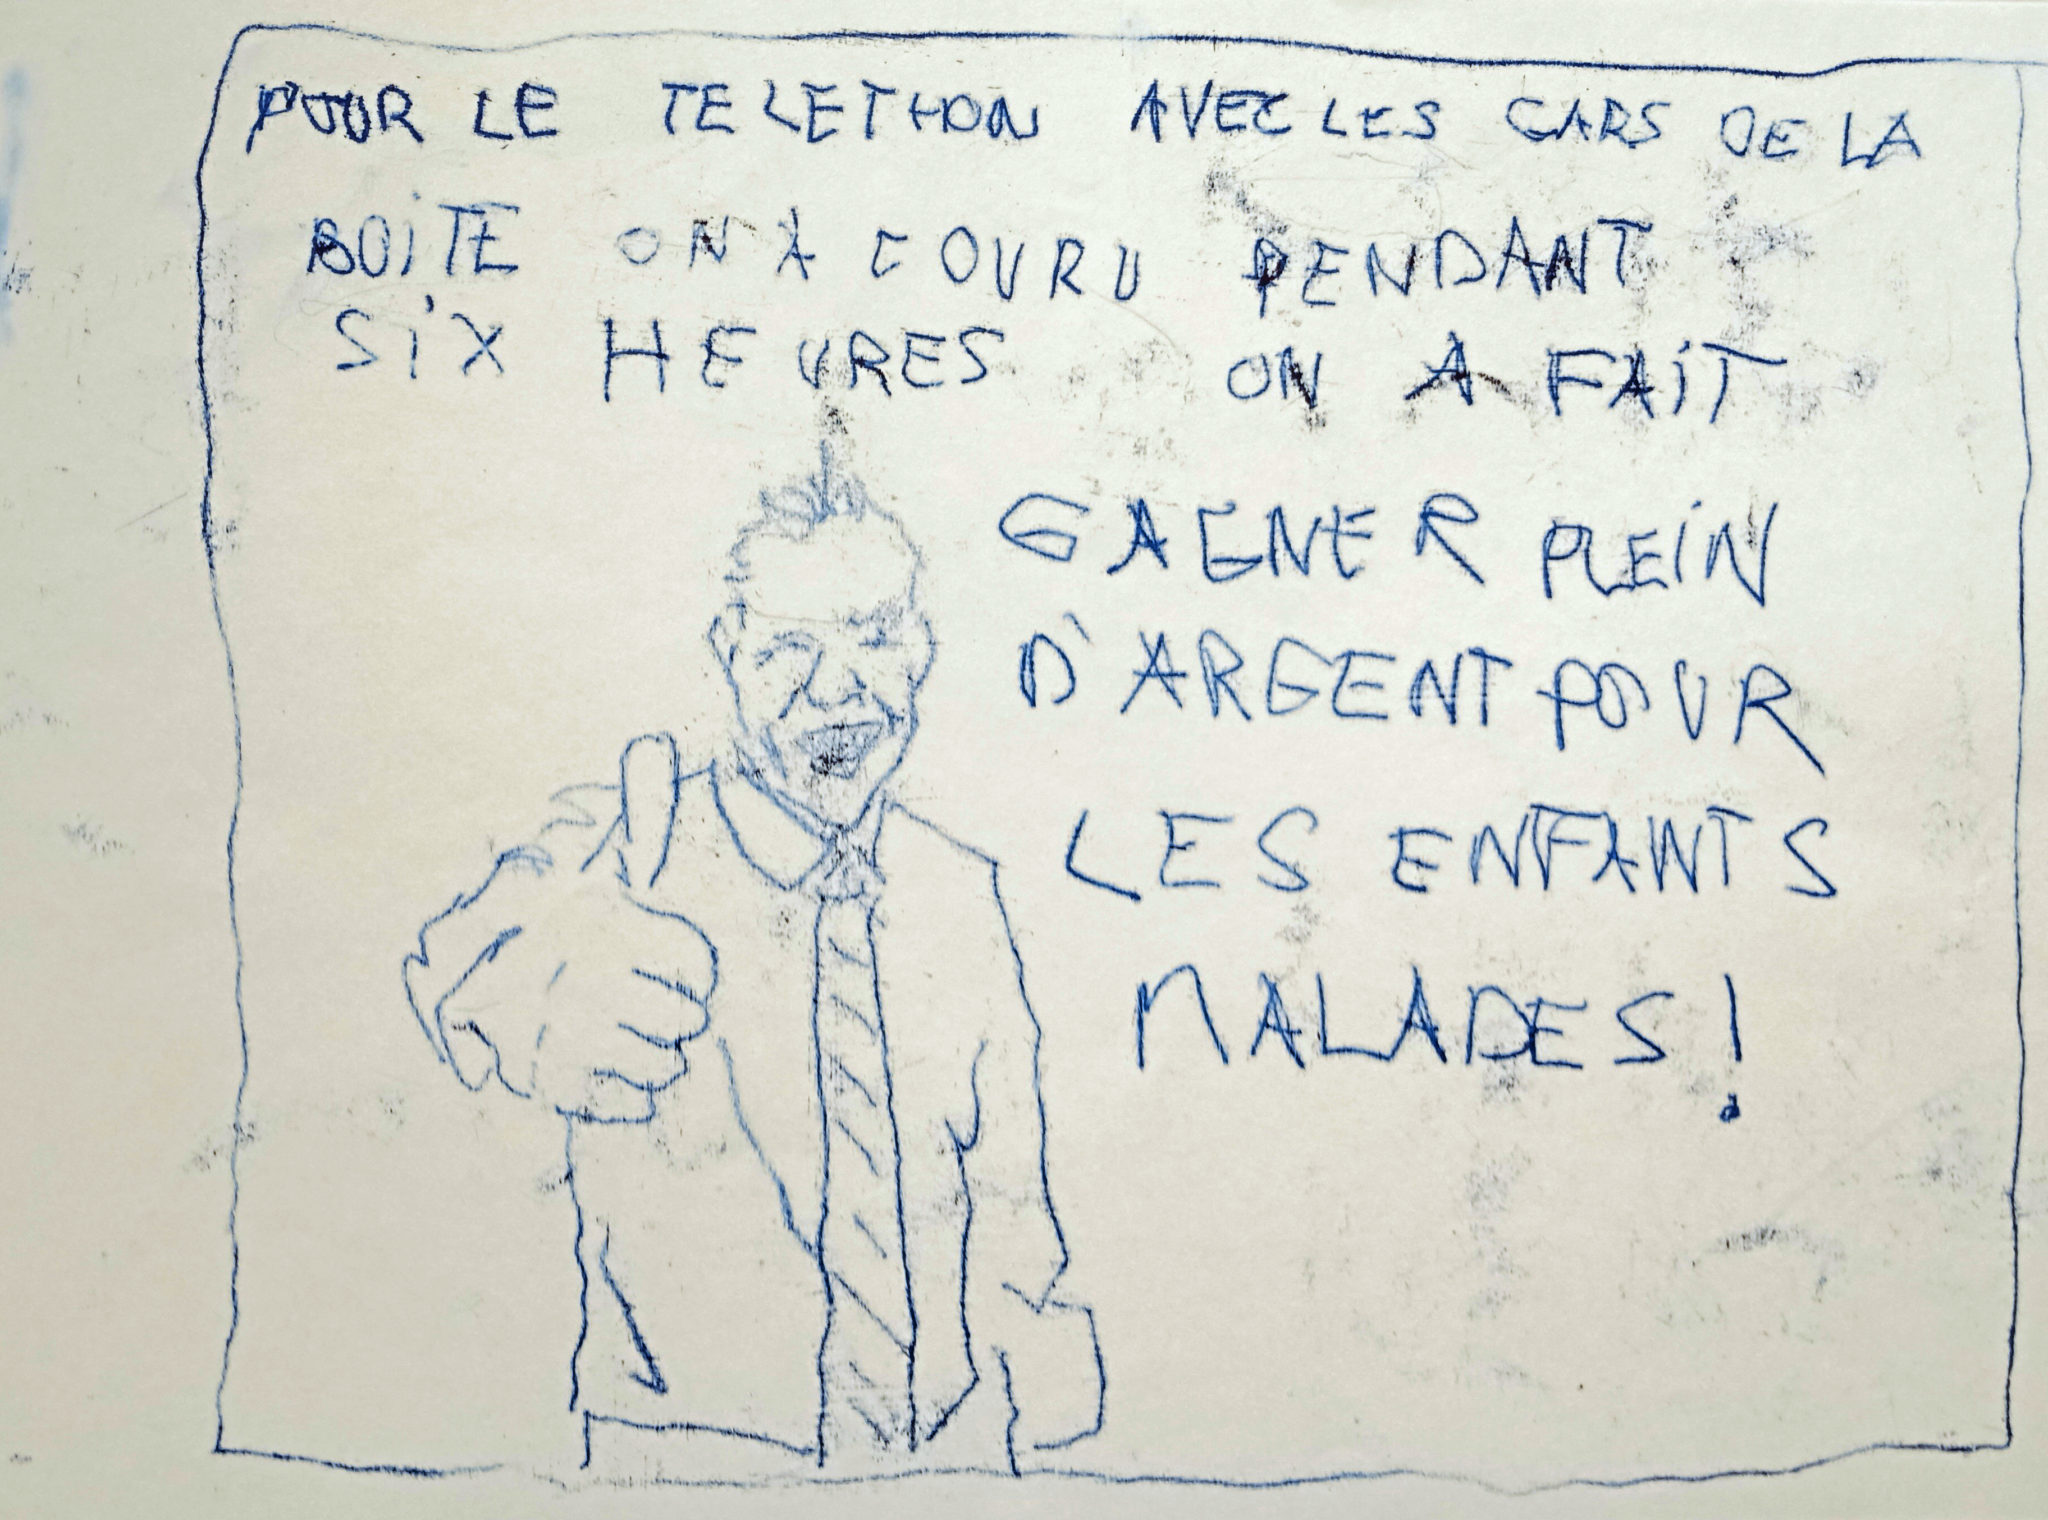 POUR LE TELETHON AVEC LES GARS DE LA
BOiTE ON A COURU PENDANT
SiX HEURES ON A FAiT
GAGNER PLEiN
D'ARGENT POUR
LES ENFANTS
MALADES !